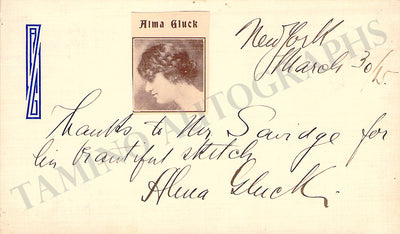 Alma Gluck
New York
March 30/15
Thanks to Mr Savidge for
his beautiful sketch
Alma Gluck.
TAMINO AUTOGRAPHS